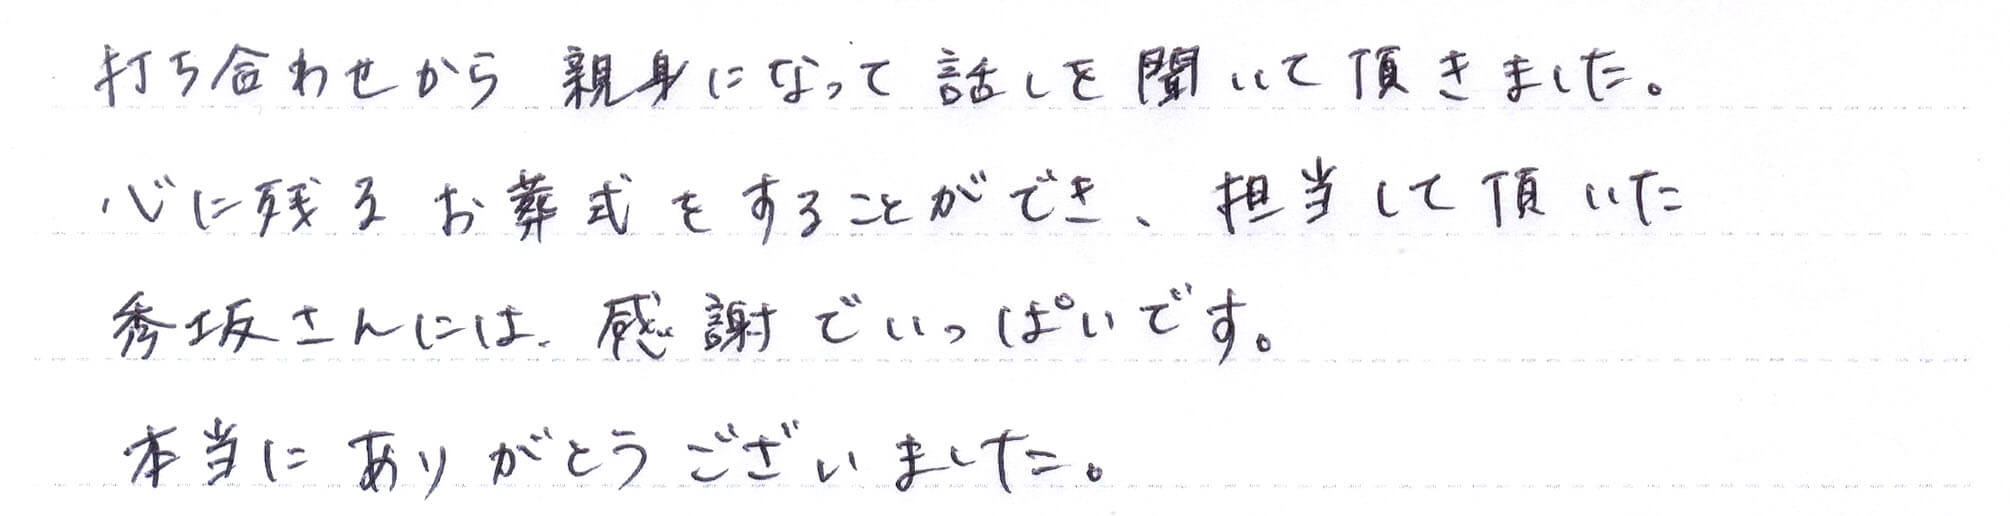 打ち合わせから 親身になって 話しを 聞いて 頂きました。
心に残る お葬式をすることができ、担当して頂いた
秀坂さんには、感謝でいっぱいです。
本当に ありがとうございました。